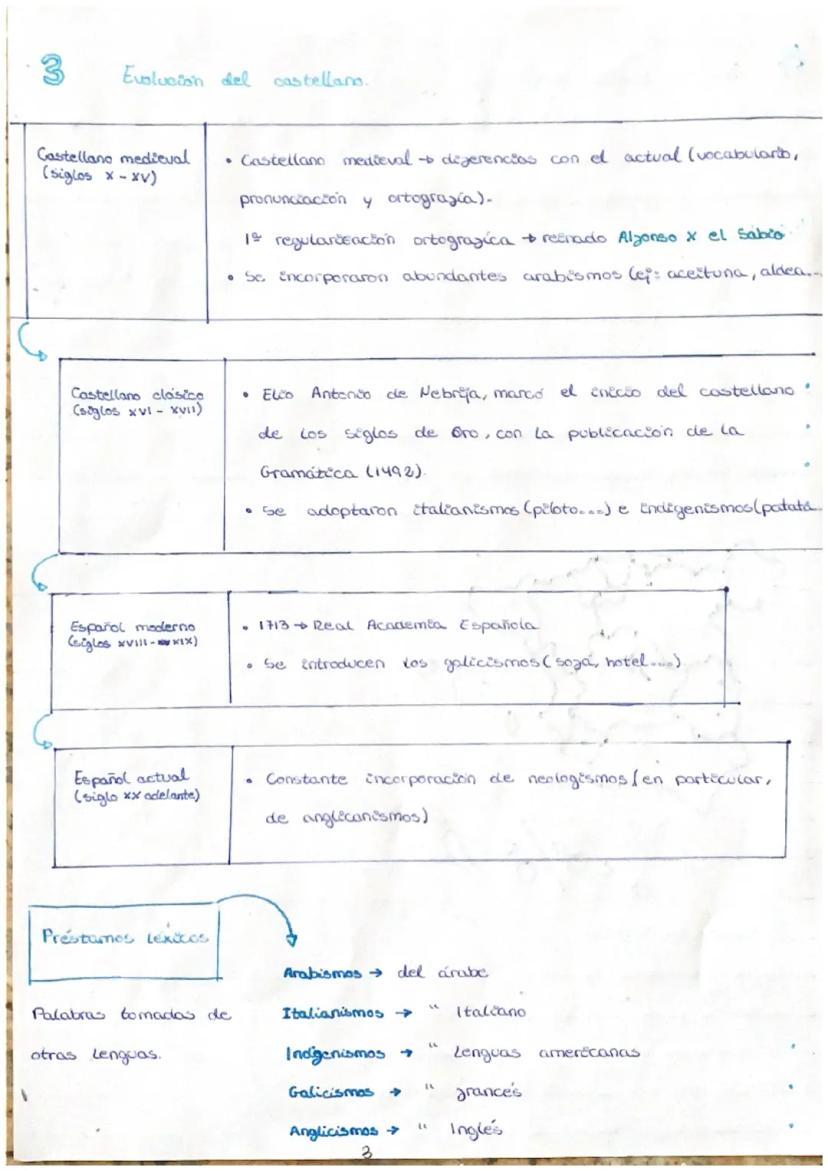 3 Evolución del castellano.
Castellano medieval
(siglos X - XV)
• Castellano medieval → diferencias con el actual (vocabulario,
pronunciación y ortografía).
1ª regularización ortográfica → reinado Alfonso X el Sabio
• Se incorporaron abundantes arabismos (ej: aceituna, aldea...
Castellano clásico
(siglos XVI - XVII)
• Elio Antonio de Nebrija, marcó el inicio del castellano
de los siglos de Oro, con la publicación de la
Gramática (1492).
• Se adoptaron italianismos (piloto...) e indigenismos (patata
Español moderno
(siglos XVIII - XIX)
• 1713 → Real Academia Española
• Se introducen los galicismos (sofá, hotel....)
Español actual
(siglo XX adelante)
• Constante incorporación de neologismos (en particular,
de anglicanismos)
Préstamos léxicos
Palabras tomadas de
otras lenguas.
Arabismos → del árabe
Italianismos → " Italiano
Indigenismos → " Lenguas americanas
Galicismos → " francés
Anglicismos → " Inglés
3